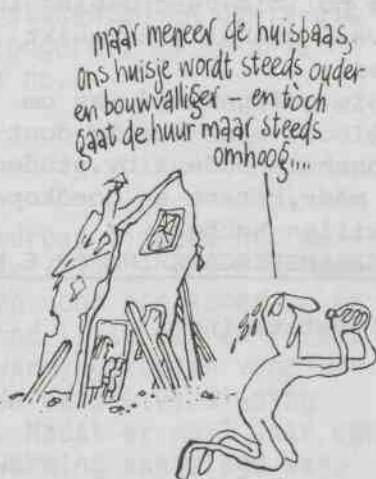 maar meneer de huisbaas,
ons huisje wordt steeds ouder
en bouwvalliger — en tòch
gaat de huur maar steeds
omhoog...